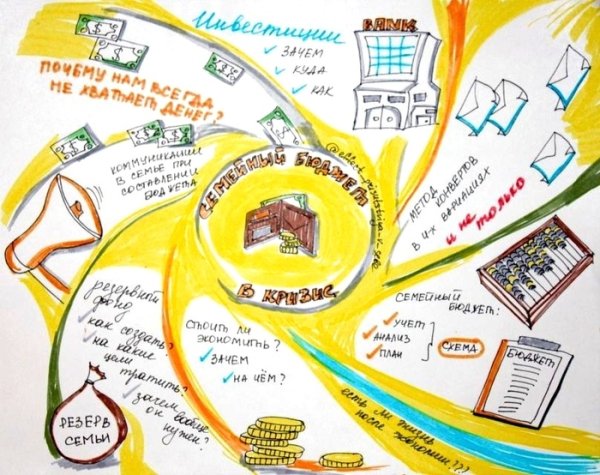 Инвестиции
зачем
куда
как
BANK
Почему нам всегда
не хватает денег?
коммуникации
в семье при
составлении
бюджета
Семейный бюджет
в кризис
метод
конвертов
в их вариациях
и не только
семейный
бюджет:
учет
анализ
план
схема
Бюджет
резервный
фонд
как создать?
на какие
цели
тратить?
зачем
он вообще
нужен?
Резерв
семьи
стоит ли
экономить?
зачем
на чём?
есть ли жизнь
после экономии???